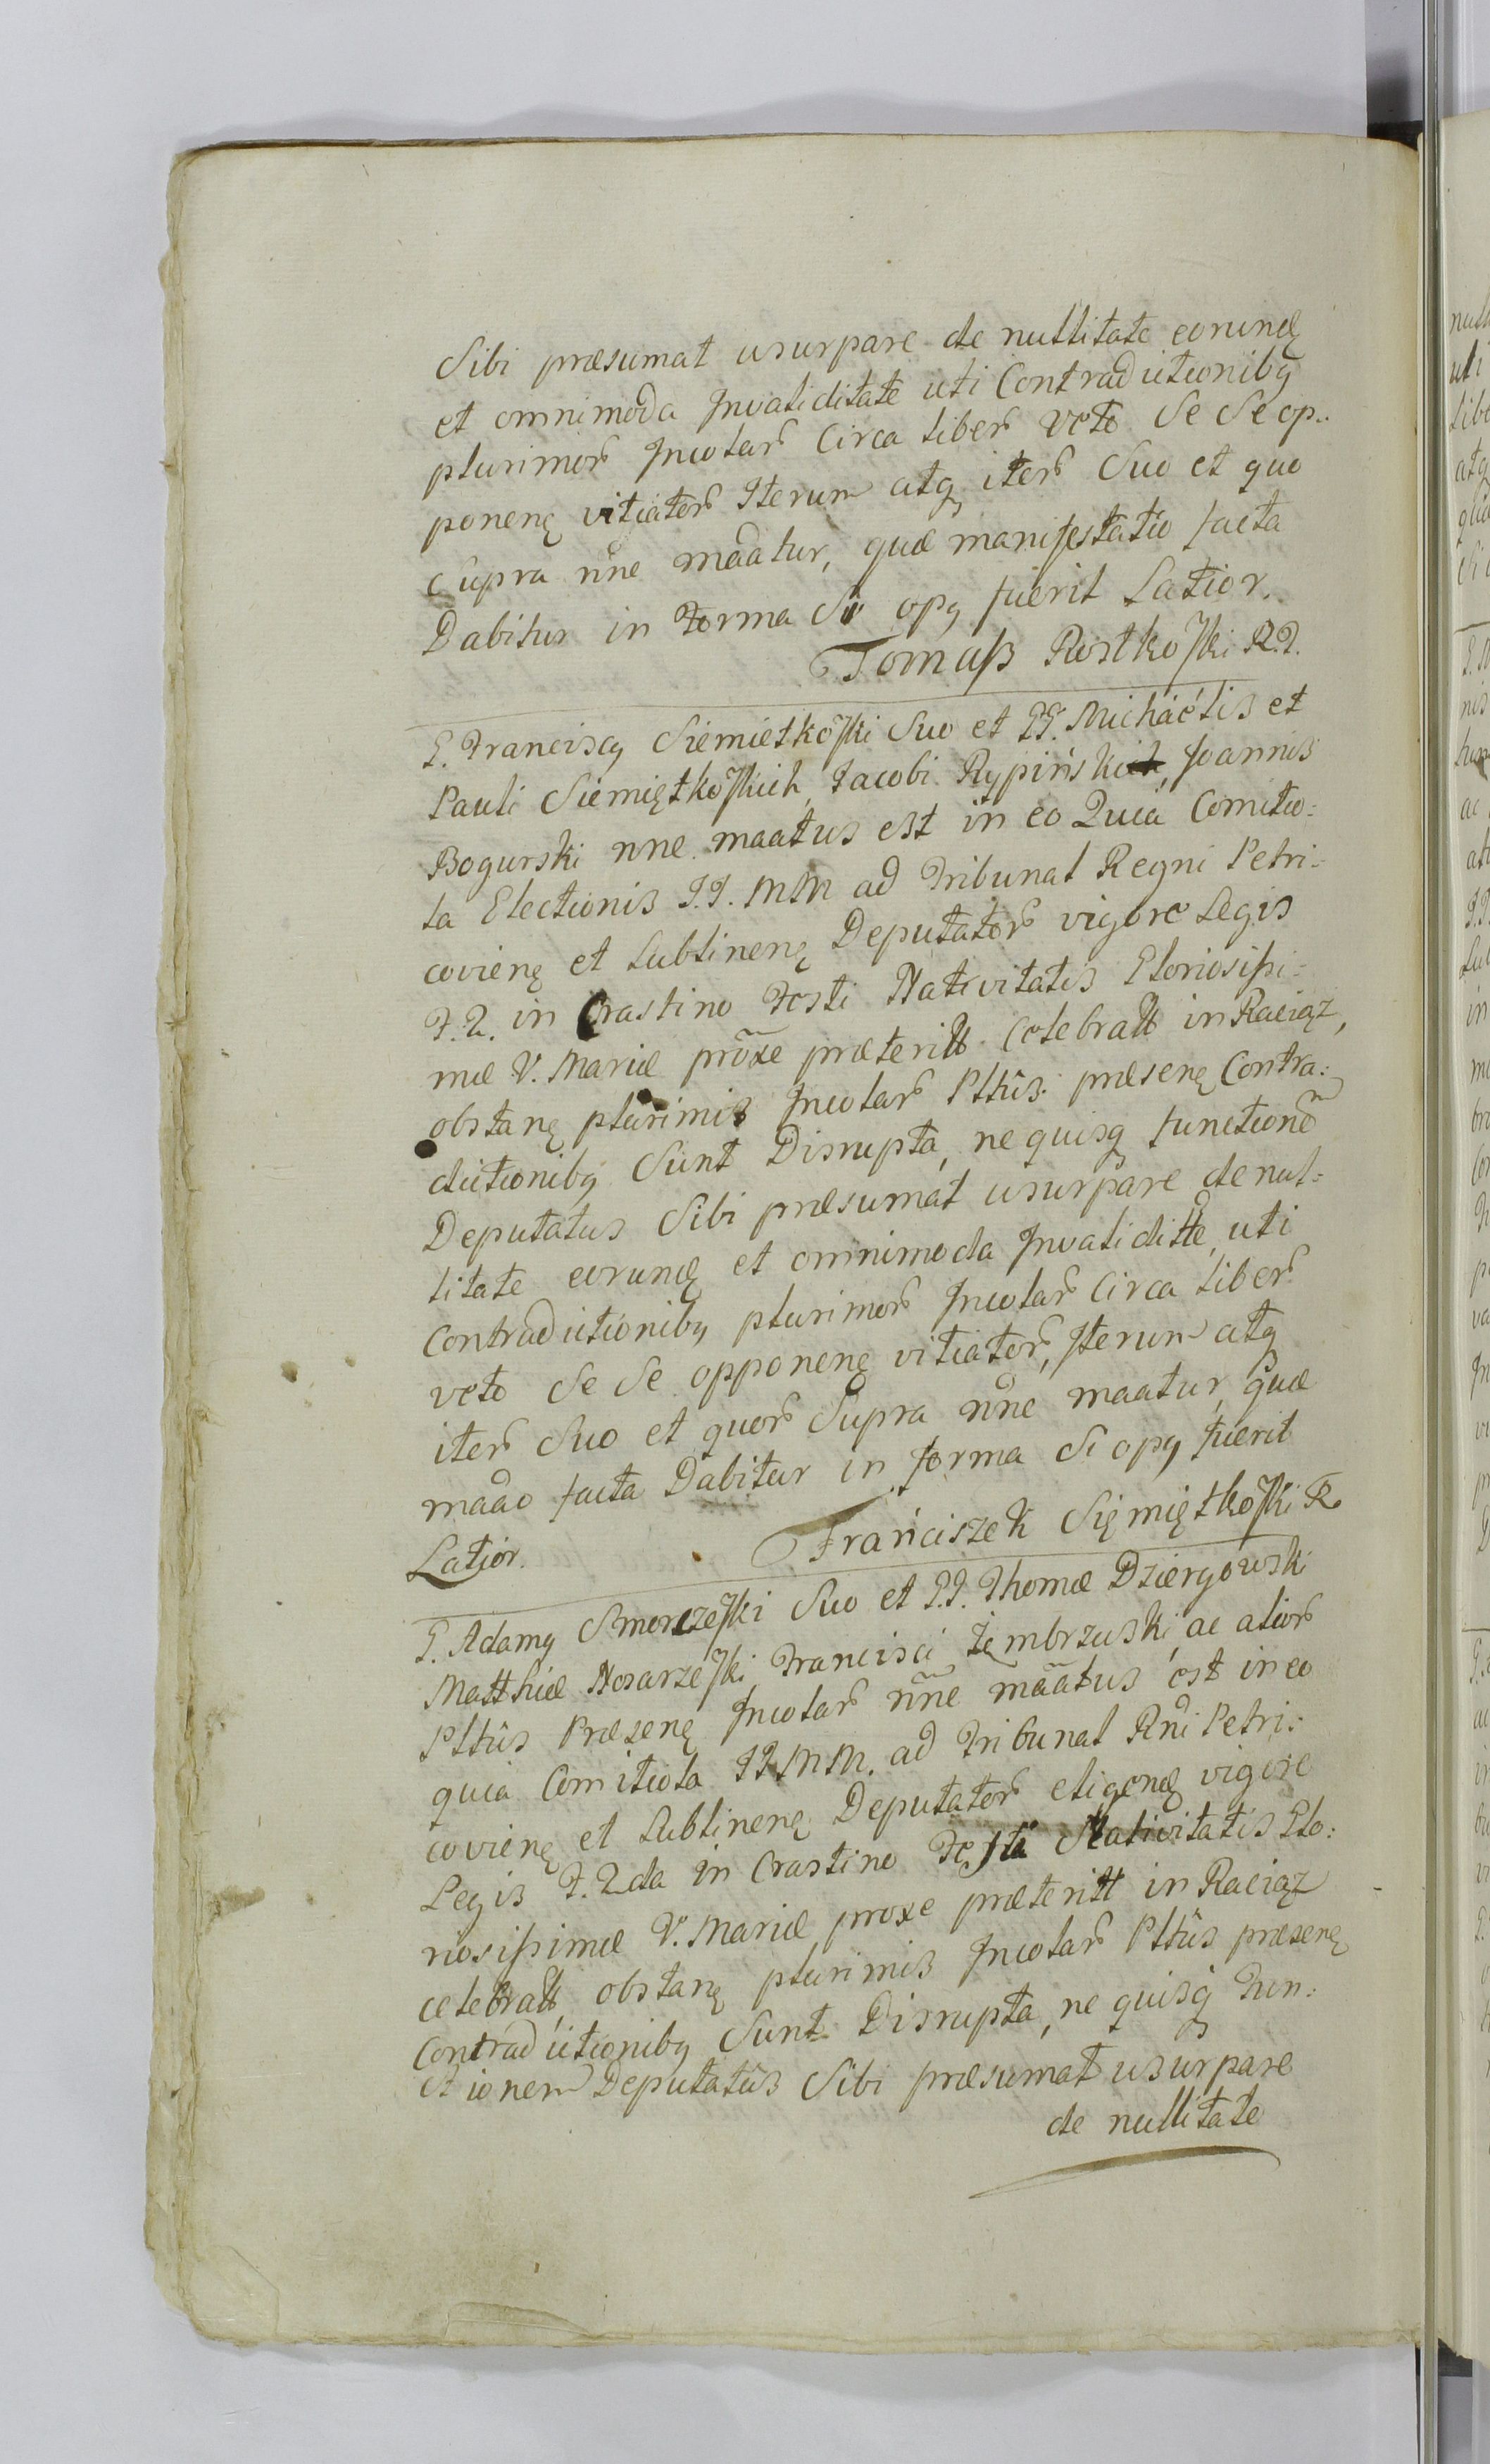 Sibi præsumat usurpare de nullitate eorundę
et omnimoda Invaliditate uti Contradictionibq
plurimor Incolar Circa liber veto Se Se op:
ponenę vitiator Iterum atq iter Suo et quo
Supra nne maatur, quæ manifestatio facta
Dabitur in Forma Si opq fuerit Latior.
Tomasz Rostkoſki R.P.
G. Franciscq Siemiętkoſki Suo et GG. Michaélis et
Pauli Siemiętkoſkich, Jacobi Rypiński, Joannis
Bogurski nne maatus est in eo Quia Comitio:
la Electionis I.I. MM ad Tribunal Regni Petri:
covienę et Lublinenę Deputator vigore Legis
F.2. in Crastino Festi Nativitatis Gloriosissi:
mæ V. Mariæ proxe præteritt Celebratt in Raciąz,
obstanę plurimis Incolar Pttûs præsenę Contra:
dictionibq Sunt Disrupta, ne quisq functionē
Deputatus Sibi præsumat usurpare de nul:
litate eorundę et omnimoda Invaliditte, uti
Contradictionibq plurimor Incolar Circa liber
veto Se Se opponenę vitiator, Iterum atq
iter Suo et quor Supra nne maatur, quæ
maao facta Dabitur in forma Si opq fuerit
Latior.
Franciszek Sięmiętkoſki R
G. Adamq Smorczeſki Suo et G.G. Thomæ Dziergowski
Matthiæ Nosarzeſki Francisci Zęmbrzuski ac alior
Pttûs Præsenę Incolar nne maatus est in eo
quia Comitiola IIMM. ad Tribunal Rni Petri:
covienę et Lublinenę Deputator eligendę vigore
Legis F. 2da in Crastino Festi Nativitatis Glo:
riosissimæ V. Mariæ proxe præteritt in Raciąz
celebratt, obstanę plurimis Incolar Pttûs præsenę
Contradictionibq Sunt Disrupta, ne quisq Fun:
ctionem Deputatûs Sibi præsumat usurpare
de nullitate